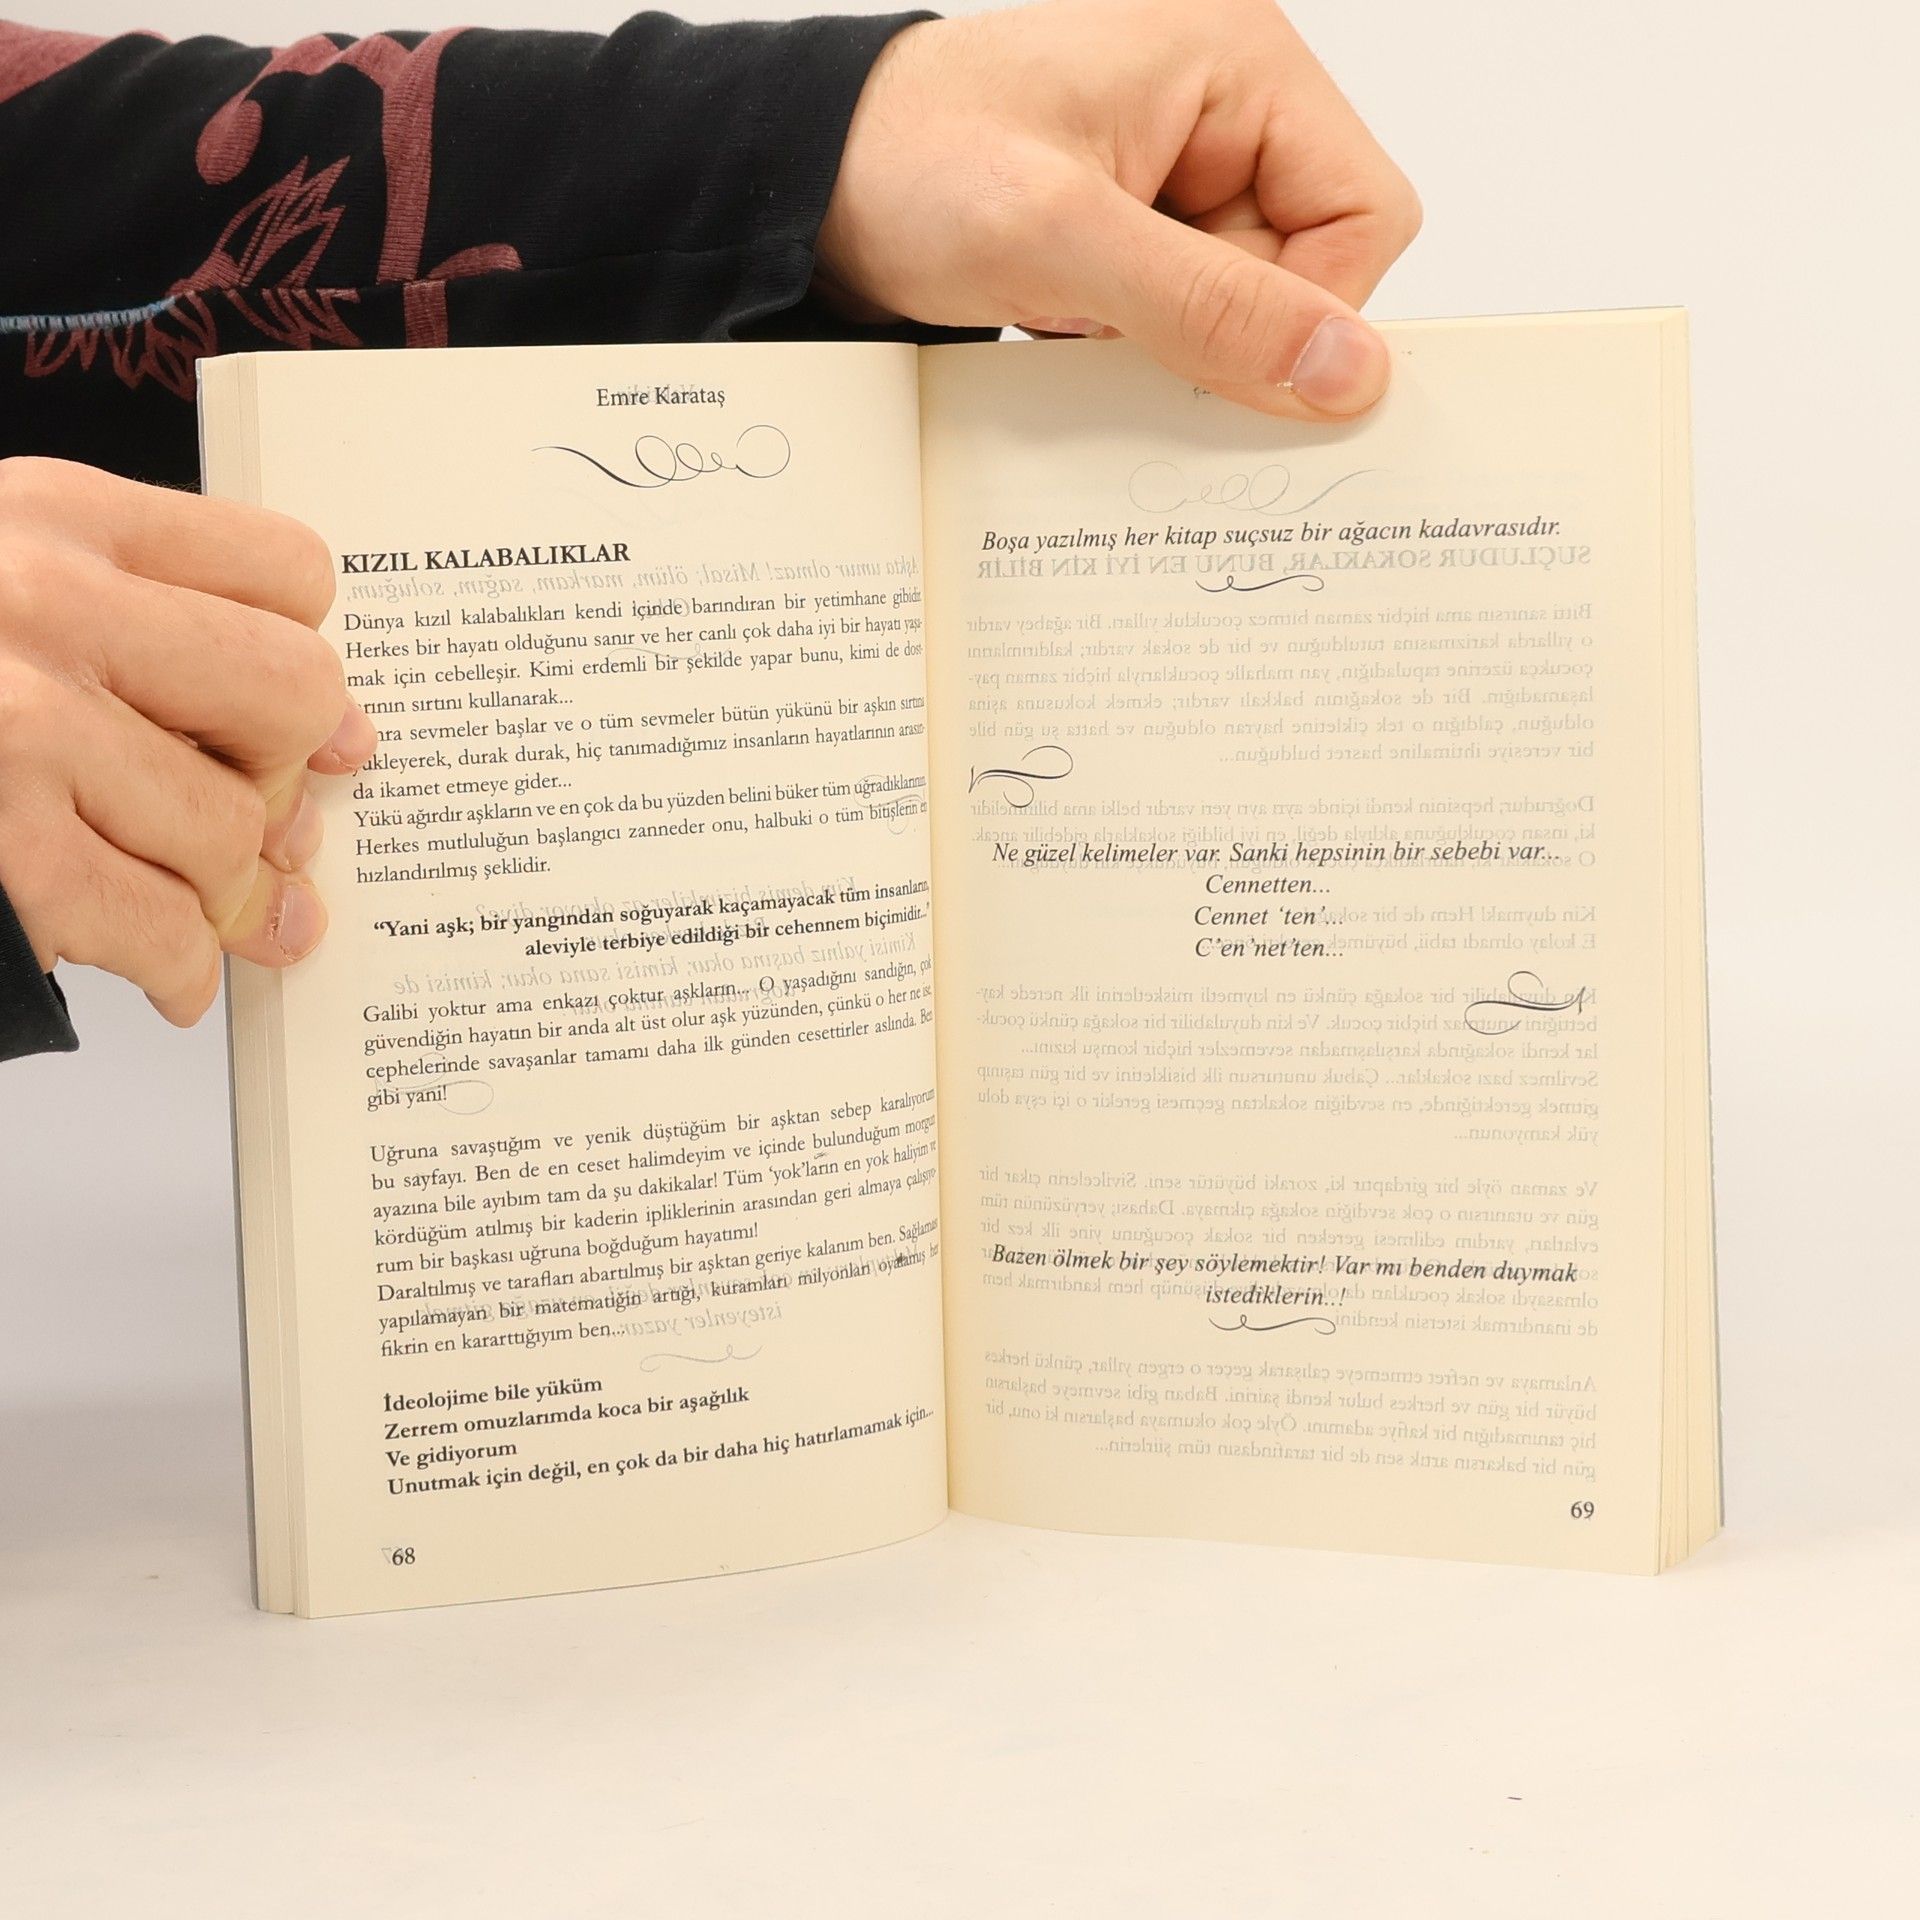 Emre Karataş
KIZIL KALABALIKLAR
Dünya kızıl kalabalıkları kendi içinde barındıran bir yetimhane gibidir.
Herkes bir hayatı olduğunu sanır ve her canlı çok daha iyi bir hayatı yaşa-
mak için cebelleşir. Kimi erdemli bir şekilde yapar bunu, kimi de dost-
sırtını kullanarak...
sevmeler başlar ve o tüm sevmeler bütün yükünü bir aşkın sırtına
yükleyerek, durak durak, hiç tanımadığımız insanların hayatlarının arasın-
da ikamet etmeye gider...
Yükü ağırdır aşkların ve en çok da bu yüzden belini büker tüm uğradıklarının.
Herkes mutluluğun başlangıcı zanneder onu, halbuki o tüm bitişlerin en
hızlandırılmış şeklidir.
“Yani aşk; bir yangından soğuyarak kaçamayacak tüm insanların,
aleviyle terbiye edildiği bir cehennem biçimidir...”
Galibi yoktur ama enkazı çoktur aşkların... O yaşadığını sandığın, çok
güvendiğin hayatın bir anda alt üst olur aşk yüzünden, çünkü o her ne ise,
cephelerinde savaşanlar tamamı daha ilk günden cesettirler aslında. Ben
gibi yani!
Uğruna savaştığım ve yenik düştüğüm bir aşktan sebep karalıyorum
bu sayfayı. Ben de en ceset halimdeyim ve içinde bulunduğum morgun
ayazına bile ayıbım tam da şu dakikalar! Tüm ‘yok’ların en yok haliyim ve
kördüğüm atılmış bir kaderin ipliklerinin arasından geri almaya çalışıyo-
rum bir başkası uğruna boğduğum hayatımı!
Daraltılmış ve tarafları abartılmış bir aşktan geriye kalanım ben. Sağlaması
yapılamayan bir matematiğin artığı, kuramları milyonları oyalamış her
fikrin en kararttığıyım ben...
İdeolojime bile yüküm
Zerrem omuzlarımda koca bir aşağılık
Ve gidiyorum
Unutmak için değil, en çok da bir daha hiç hatırlamamak için...
68
Boşa yazılmış her kitap suçsuz bir ağacın kadavrasıdır.
Ne güzel kelimeler var. Sanki hepsinin bir sebebi var...
Cennetten...
Cennet ‘ten’...
C’en’net’ten...
Bazen ölmek bir şey söylemektir! Var mı benden duymak
istediklerin..!
69